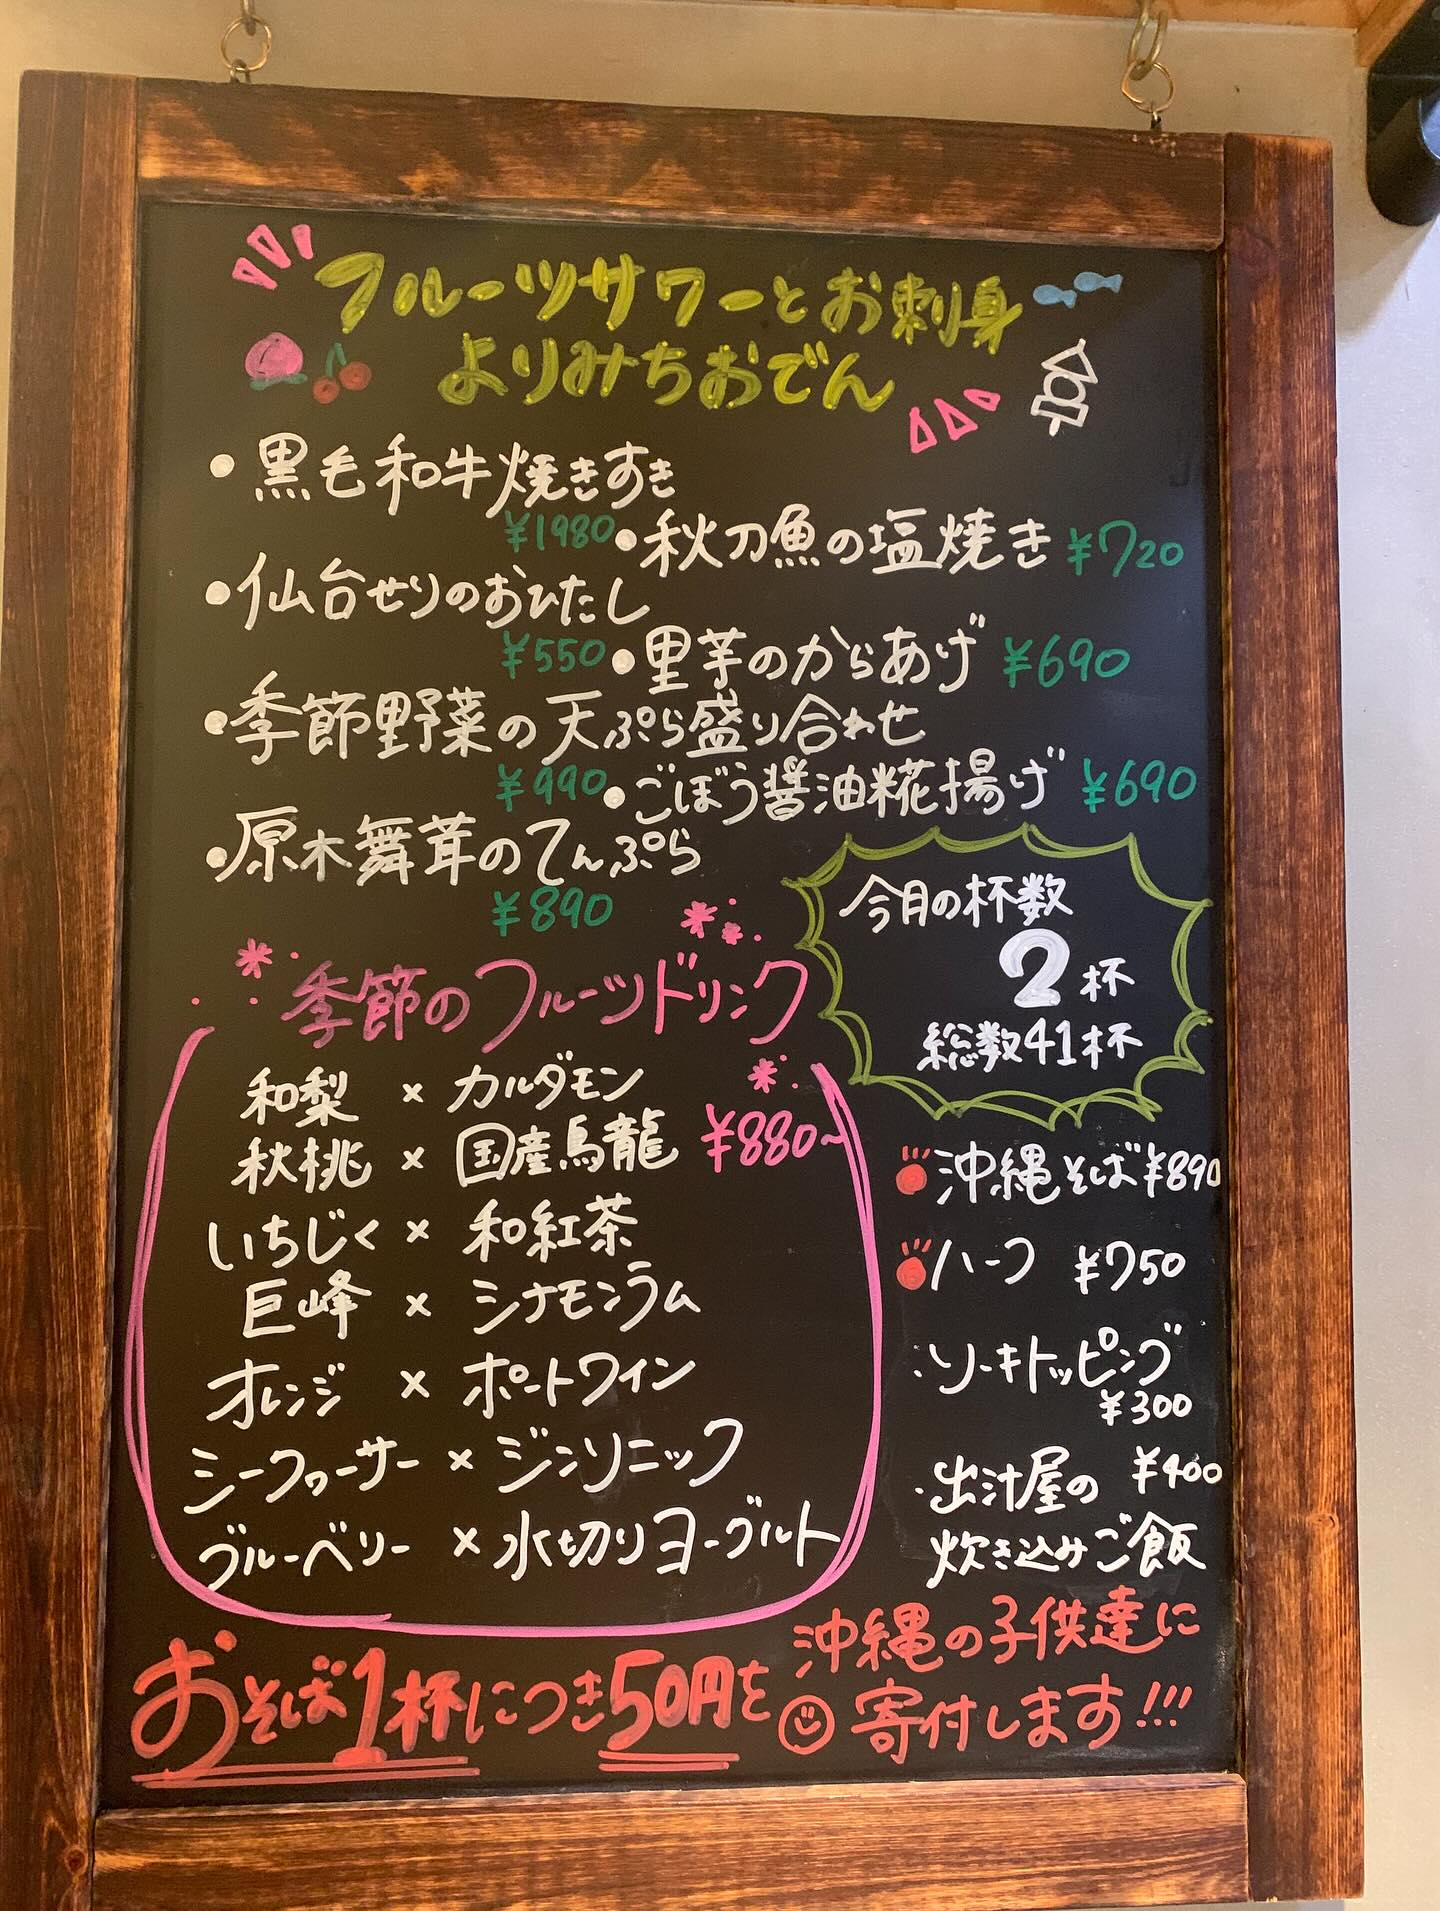 フルーツサワーとお刺身
よりみちおでん
・黒毛和牛焼きすき
¥1980
・秋刀魚の塩焼き ¥720
・仙台せりのおひたし
¥550
・里芋のからあげ ¥690
・季節野菜の天ぷら盛り合わせ
¥990
・ごぼう醤油糀揚げ ¥690
・原木舞茸のてんぷら
¥890
今月の杯数
2杯
総数41杯
季節のフルーツドリンク
和梨 × カルダモン
秋桃 × 国産烏龍 ¥880~
いちじく × 和紅茶
巨峰 × シナモンラム
オレンジ × ポートワイン
シークヮーサー × ジンソニック
ブルーベリー × 水切りヨーグルト
沖縄そば ¥890
ハーフ ¥750
・ソーキトッピング
¥300
・出汁屋の ¥400
炊き込みご飯
おそば1杯につき50円を
沖縄の子供達に
寄付します!!!